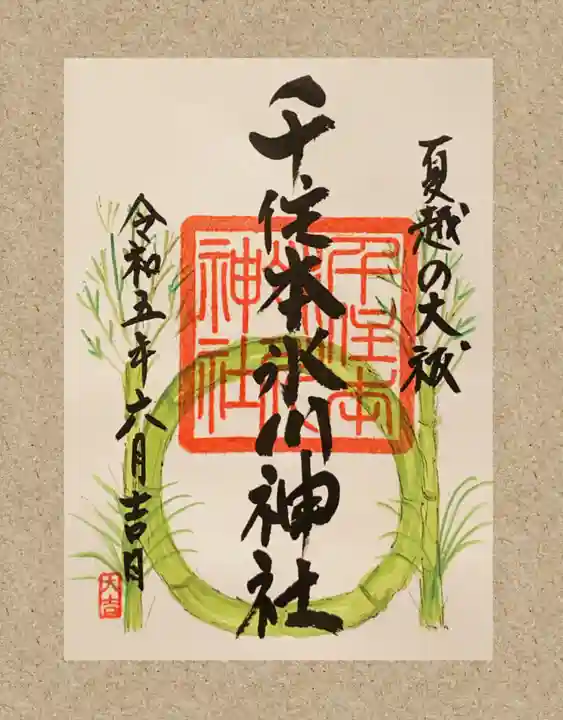 夏越の大祓
千住本氷川神社
千住本
氷川
神社
令和五年六月吉日
大吉